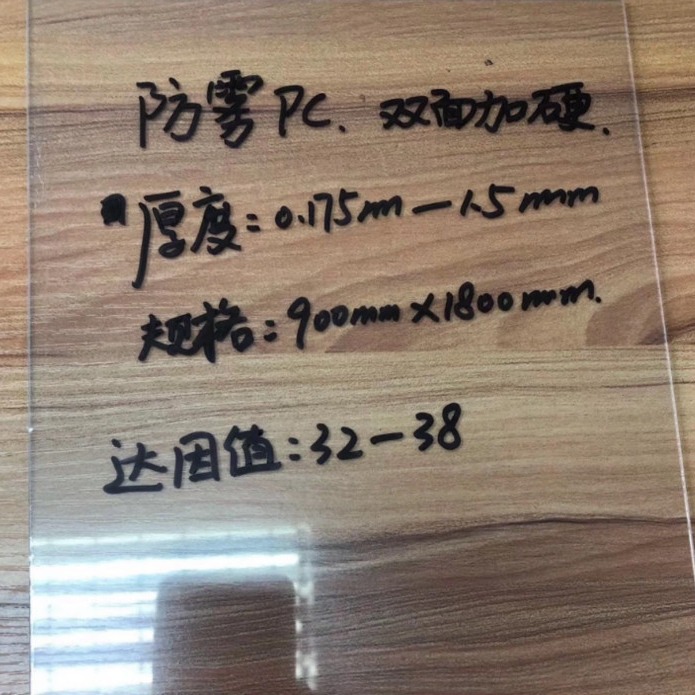 防雾PC. 双面加硬.
厚度:0.175m—1.5mm
规格:900mm×1800mm.
达因值:32—38